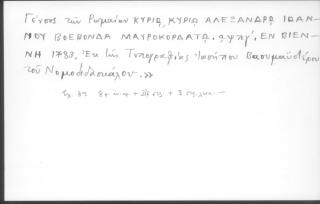 Γένους τῶν Ρωμαίων ΚΥΡΙΩ, ΚΥΡΙΩ ΑΛΕΞΑΝΔΡΩ ΙΩΑΝ-
ΝΟΥ ΒΟΕΒΟΝΔΑ ΜΑΥΡΟΚΟΡΔΑΤΩ. ͵αψπγ΄, ΕΝ ΒΙΕΝ-
ΝΗ 1783, Ἐκ τῆς Τυπογραφίας Ἰωσήπου Βαουμαϊστέρου
τοῦ Νομοδιδασκάλου.»